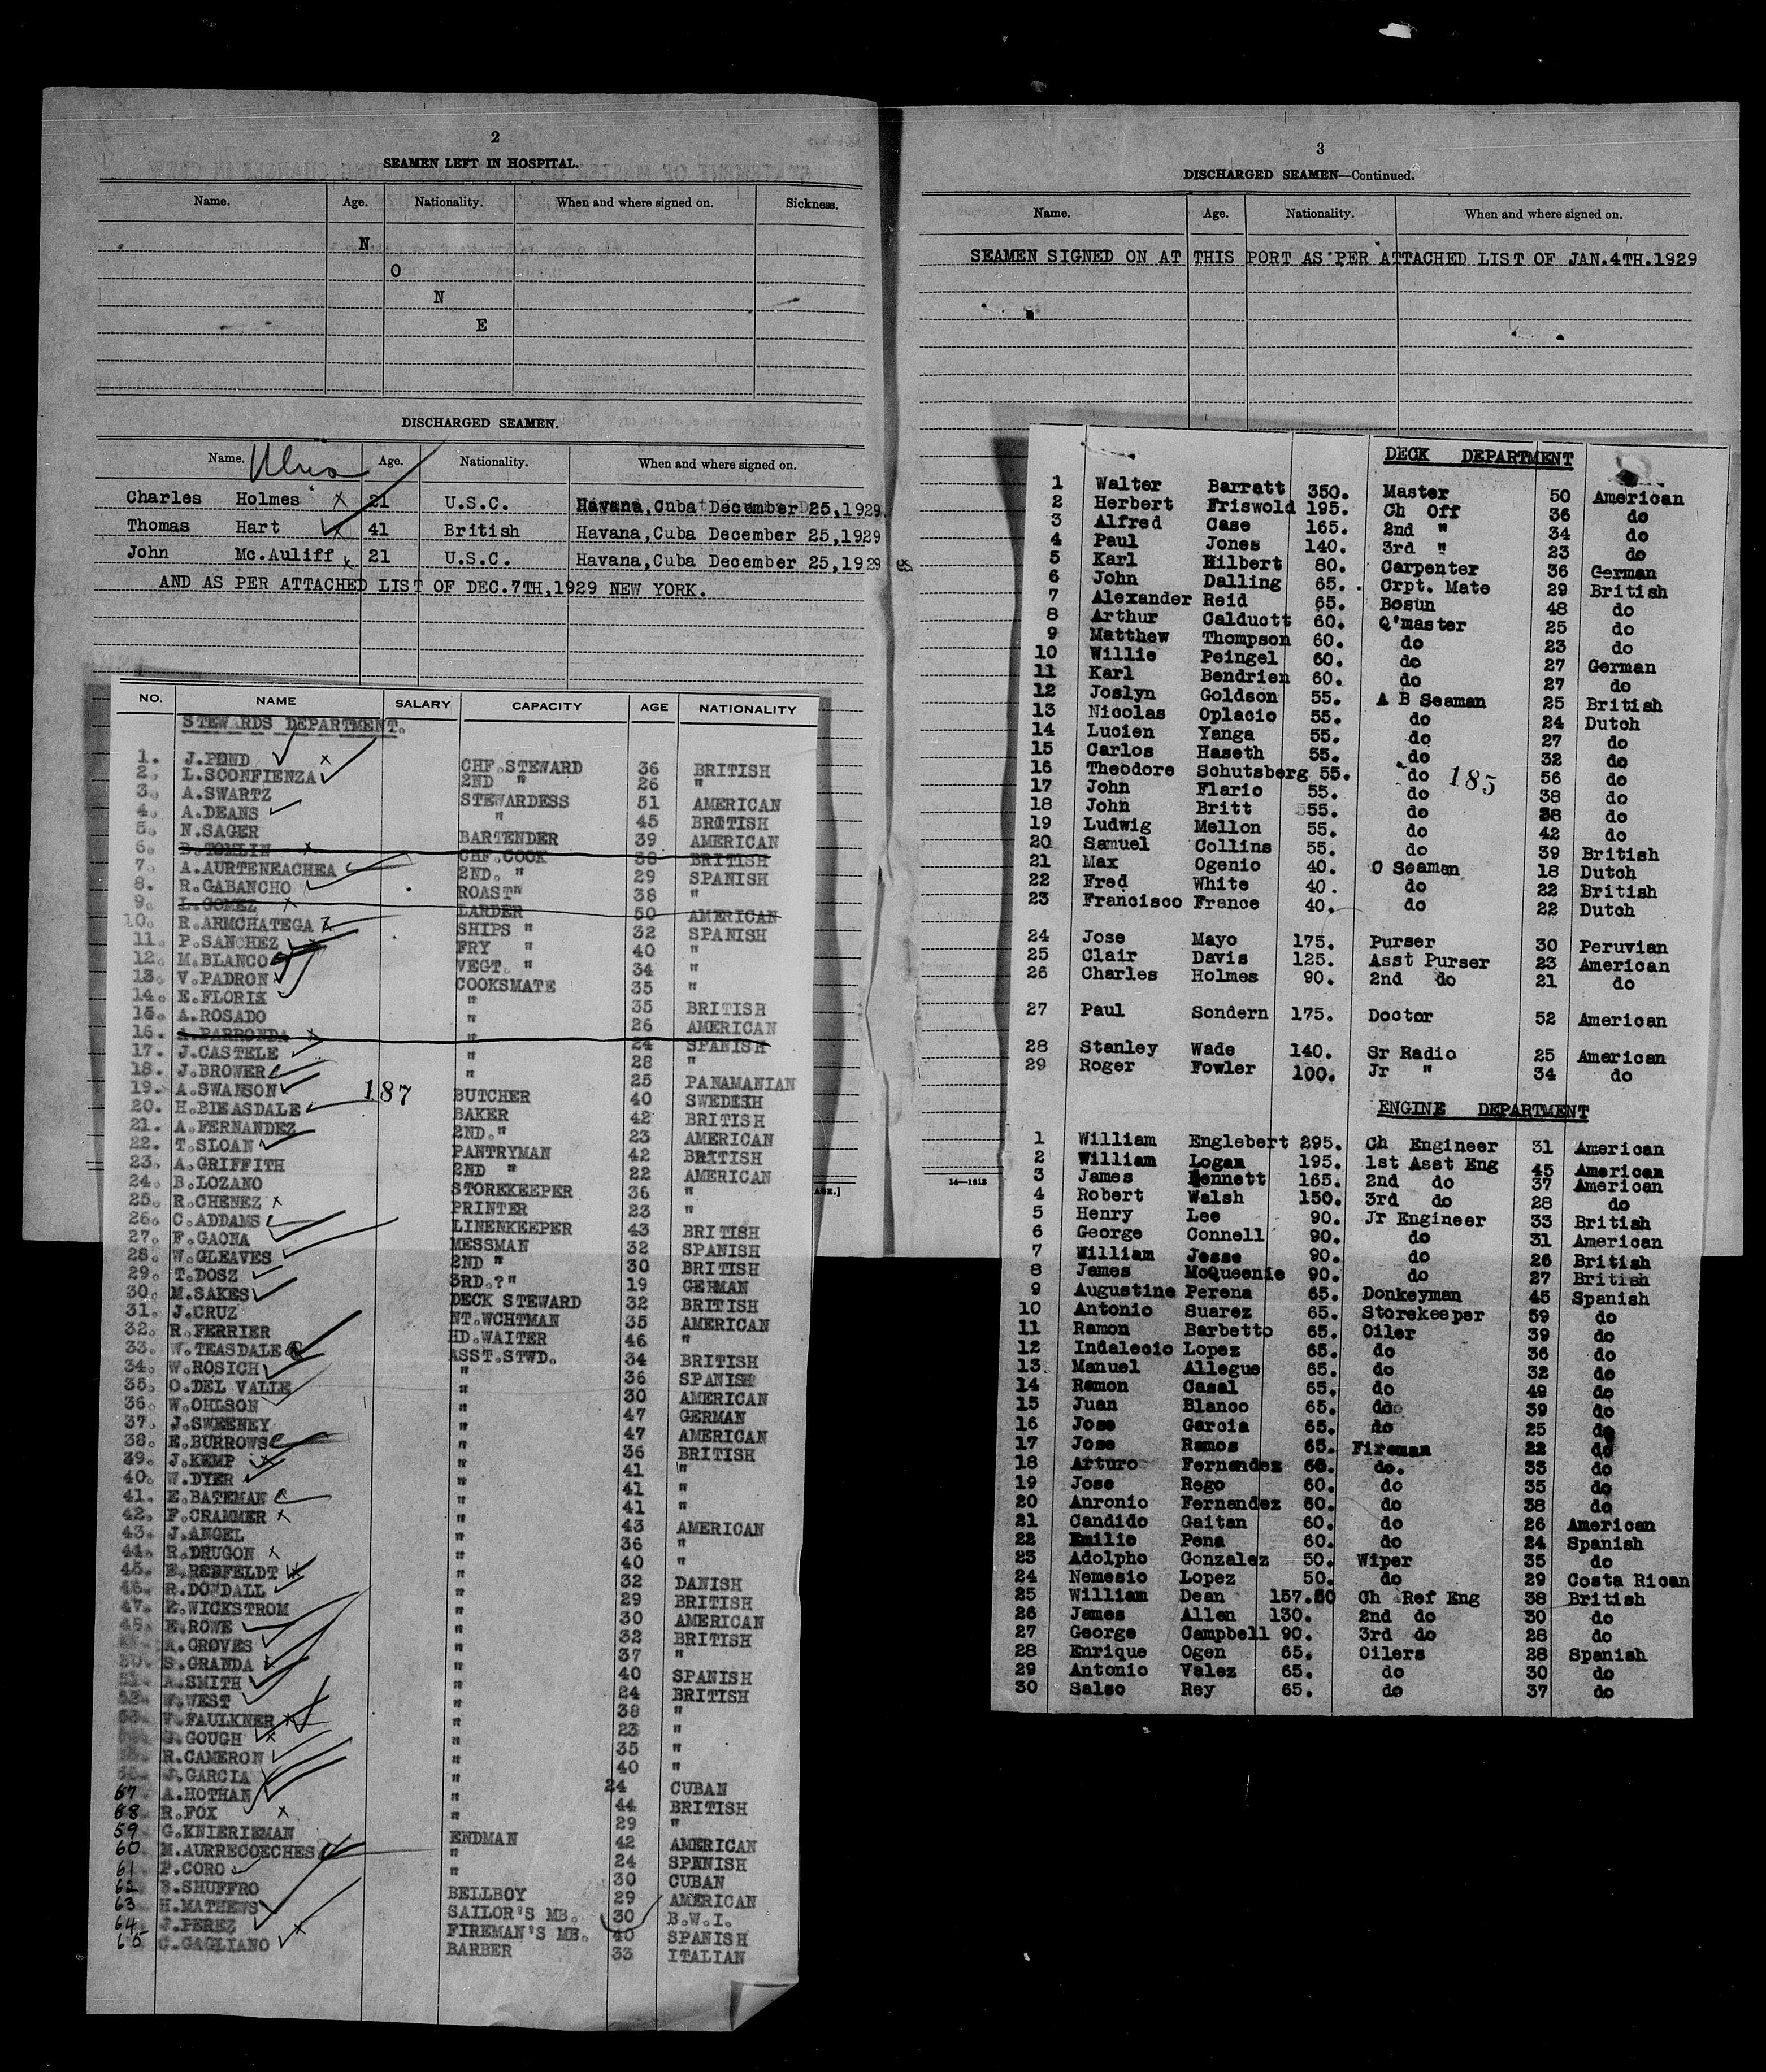 2
SEAMEN LEFT IN HOSPITAL.
Name. Age. Nationality. When and where signed on. Sickness.
N
O
N
E
DISCHARGED SEAMEN.
Name. Age. Nationality. When and where signed on.
Charles Holmes x 21 U.S.C. Havana, Cuba December 25,1929.
Thomas Hart x 41 British Havana,Cuba December 25,1929
John Mc.Auliff x 21 U.S.C. Havana,Cuba December 25,1929
AND AS PER ATTACHED LIST OF DEC.7TH,1929 NEW YORK.
NO. NAME SALARY CAPACITY AGE NATIONALITY
STEWARDS DEPARTMENT.
1. J.POND x CHF.STEWARD 36 BRITISH
2. L.SCONFIENZA 2ND " 26 "
3. A.SWARTZ STEWARDESS 51 AMERICAN
4. A.DEANS " 45 BRITISH
5. N.SAGER BARTENDER 39 AMERICAN
6. B.TOMLIN x CHF.COOK 38 BRITISH
7. A.AURTENEACHEA 2ND. " 29 SPANISH
8. R.GABANCHO ROAST" 38 "
9. L.GOMEZ x LARDER 50 AMERICAN
10. R.ARMCHATEGA SHIPS " 32 SPANISH
11. P.SANCHEZ FRY " 40 "
12. M.BLANCO VEGT. " 34 "
13. V.PADRON COOKSMATE 35 "
14. E.FLORIX " 35 BRITISH
15. A.ROSADO " 26 AMERICAN
16. A.PARRONDA x " 24 SPANISH
17. J.CASTELE " 28 "
18. J.BROWER " 25 PANAMANIAN
19. A.SWANSON 187 BUTCHER 40 SWEDISH
20. H.BIEASDALE BAKER 42 BRITISH
21. A.FERNANDEZ 2ND." 23 AMERICAN
22. T.SLOAN PANTRYMAN 42 BRITISH
23. A.GRIFFITH 2ND " 22 AMERICAN
24. B.LOZANO STOREKEEPER 36 "
25. R.CHENEZ x PRINTER 23 "
26. C.ADDAMS LINENKEEPER 43 BRITISH
27. F.GAONA MESSMAN 32 SPANISH
28. W.GLEAVES 2ND " 30 BRITISH
29. T.DOSZ 3RD.?" 19 GERMAN
30. M.SAKES DECK STEWARD 32 BRITISH
31. J.CRUZ NT.WCHTMAN 35 AMERICAN
32. R.FERRIER HD.WAITER 46 "
33. W.TEASDALE ASST.STWD. 34 BRITISH
34. W.ROSICH " 36 SPANISH
35. O.DEL VALLE " 30 AMERICAN
36. W.OHLSON " 47 GERMAN
37. J.SWEENEY " 47 AMERICAN
38. E.BURROWS " 36 BRITISH
39. J.KEMP x " 41 "
40. W.DYER " 41 "
41. E.BATEMAN " 41 "
42. F.CRAMMER x " 43 AMERICAN
43. J.ANGEL " 36 "
44. R.DRUGON x " 40 "
45. E.RENFELDT x " 32 DANISH
46. R.DOWDALL " 29 BRITISH
47. E.WICKSTROM " 30 AMERICAN
48. E.ROWE " 32 BRITISH
A.GROVES " 37 "
50. S.GRANDA " 40 SPANISH
51. A.SMITH " 24 BRITISH
52. W.WEST " 38 "
FAULKNER x " 23 "
GOUGH x " 35 "
R.CAMERON " 40 "
GARCIA " 24 CUBAN
57 A.HOTHAN " 44 BRITISH
58 R.FOX x " 29 "
59 G.KNIERIEMAN ENDMAN 42 AMERICAN
60 M.AURRECOECHES " 24 SPENISH
61 P.CORO " 30 CUBAN
62 SHUFFRO BELLBOY 29 AMERICAN
63 H.MATHEWS SAILOR'S MB. 30 B.W.I.
64 PEREZ x FIREMAN'S MB. 40 SPANISH
65 C.GAGLIANO BARBER 33 ITALIAN
3
DISCHARGED SEAMEN—Continued.
Name. Age. Nationality. When and where signed on.
SEAMEN SIGNED ON AT THIS PORT AS PER ATTACHED LIST OF JAN.4TH.1929
DECK DEPARTMENT
1 Walter Barratt 350. Master 50 American
2 Herbert Friswold 195. Ch Off 36 do
3 Alfred Case 165. 2nd " 34 do
4 Paul Jones 140. 3rd " 23 do
5 Karl Hilbert 80. Carpenter 36 German
6 John Dalling 65. Crpt. Mate 29 British
7 Alexander Reid 65. Bosun 48 do
8 Arthur Calduott 60. Q'master 25 do
9 Matthew Thompson 60. do 23 do
10 Willie Peingel 60. do 27 German
11 Karl Bendrien 60. do 27 do
12 Joslyn Goldson 55. A B Seaman 25 British
13 Nicolas Oplacio 55. do 24 Dutch
14 Lucien Yanga 55. do 27 do
15 Carlos Haseth 55. do 32 do
16 Theodore Schutsberg 55. do 185 56 do
17 John Flario 55. do 38 do
18 John Britt 55. do 38 do
19 Ludwig Mellon 55. do 42 do
20 Samuel Collins 55. do 39 British
21 Max Ogenio 40. O Seaman 18 Dutch
22 Fred White 40. do 22 British
23 Francisco France 40. do 22 Dutch
24 Jose Mayo 175. Purser 30 Peruvian
25 Clair Davis 125. Asst Purser 23 American
26 Charles Holmes 90. 2nd do 21 do
27 Paul Sondern 175. Doctor 52 American
28 Stanley Wade 140. Sr Radio 25 American
29 Roger Fowler 100. Jr " 34 do
ENGINE DEPARTMENT
1 William Englebert 295. Ch Engineer 31 American
2 William Logan 195. 1st Asst Eng 45 American
3 James Bennett 165. 2nd do 37 American
4 Robert Walsh 150. 3rd do 28 do
5 Henry Lee 90. Jr Engineer 33 British
6 George Connell 90. do 31 American
7 William Jesse 90. do 26 British
8 James McQueenie 90. do 27 British
9 Augustine Perena 65. Donkeyman 45 Spanish
10 Antonio Suarez 65. Storekeeper 59 do
11 Ramon Barbetto 65. Oiler 39 do
12 Indalecio Lopez 65. do 36 do
13 Manuel Allegue 65. do 32 do
14 Ramon Casal 65. do 49 do
15 Juan Blanco 65. do 39 do
16 Jose Garcia 65. do 25 do
17 Jose Ramos 65. Fireman 22 do
18 Arturo Fernandez 60. do. 33 do
19 Jose Rego 60. do 35 do
20 Anronio Fernandez 60. do 38 do
21 Candido Gaitan 60. do 26 American
22 Emilio Pena 60. do 24 Spanish
23 Adolpho Gonzalez 50. Wiper 35 do
24 Nemesio Lopez 50. do 29 Costa Rican
25 William Dean 157.50 Ch Ref Eng 38 British
26 James Allen 130. 2nd do 30 do
27 George Campbell 90. 3rd do 28 do
28 Enrique Ogen 65. Oilers 28 Spanish
29 Antonio Valez 65. do 30 do
30 Salso Rey 65. do 37 do
14—1612